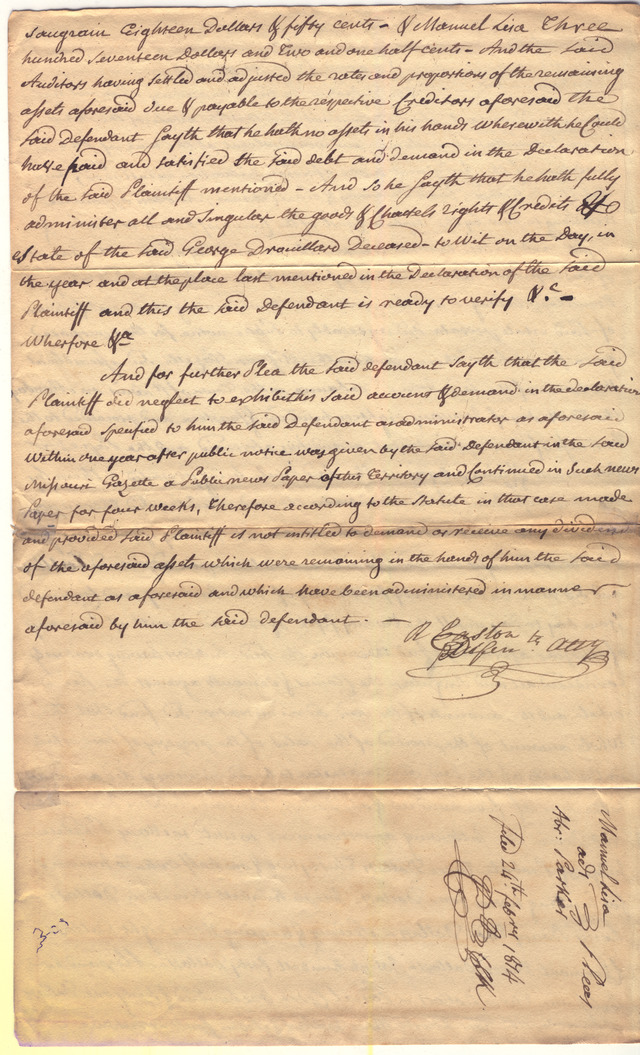 Saugrain Eighteen Dollars & fifty cents - & Manuel Lisa Three
hundred Seventeen Dollars and Two and one half cents - And the Said
Auditors having Settled and adjusted the rates and proportions of the remaining
assets aforesaid due & payable to the respective Creditors aforesaid the
Said Defendant Sayth that he hath no assets in his hands wherewith he Could
have paid and satisfied the Said debt and demand in the Declaration
of the Said Plaintiff mentioned - And So he Sayth that he hath fully
administer all and Singular the goods & Chattels rights & Credits &
Estate of the Said George Drouillard Deceased - to Wit on the Day, in
the year and at the place last mentioned in the Declaration of the Said
Plaintiff and this the Said Defendant is ready to verify &.c -
Wherfore &a
And for further Plea the Said defendant Sayth that the Said
Plaintiff did neglect to exhibit his Said account & demand in the declaration
aforesaid Specified to him the Said Defendant as administrator as aforesaid
Within one year after public notice was given by the Said Defendant in the Said
Missouri Gazette a Public news Paper of this Territory and Continued in Such news
Paper for four weeks, Therefore according to the Statute in that case made
and provided Said Plaintiff is not intitled to demand or receive any dividend
of the aforesaid assets which were remaining in the hands of him the Said
defendant as aforesaid and which have been administered in manner
aforesaid by him the Said defendant. -
R Easton
Defen.ts atty
Manuel Lisa
ads } Pleas
Abr: Parker
Filed 24th febry 1814